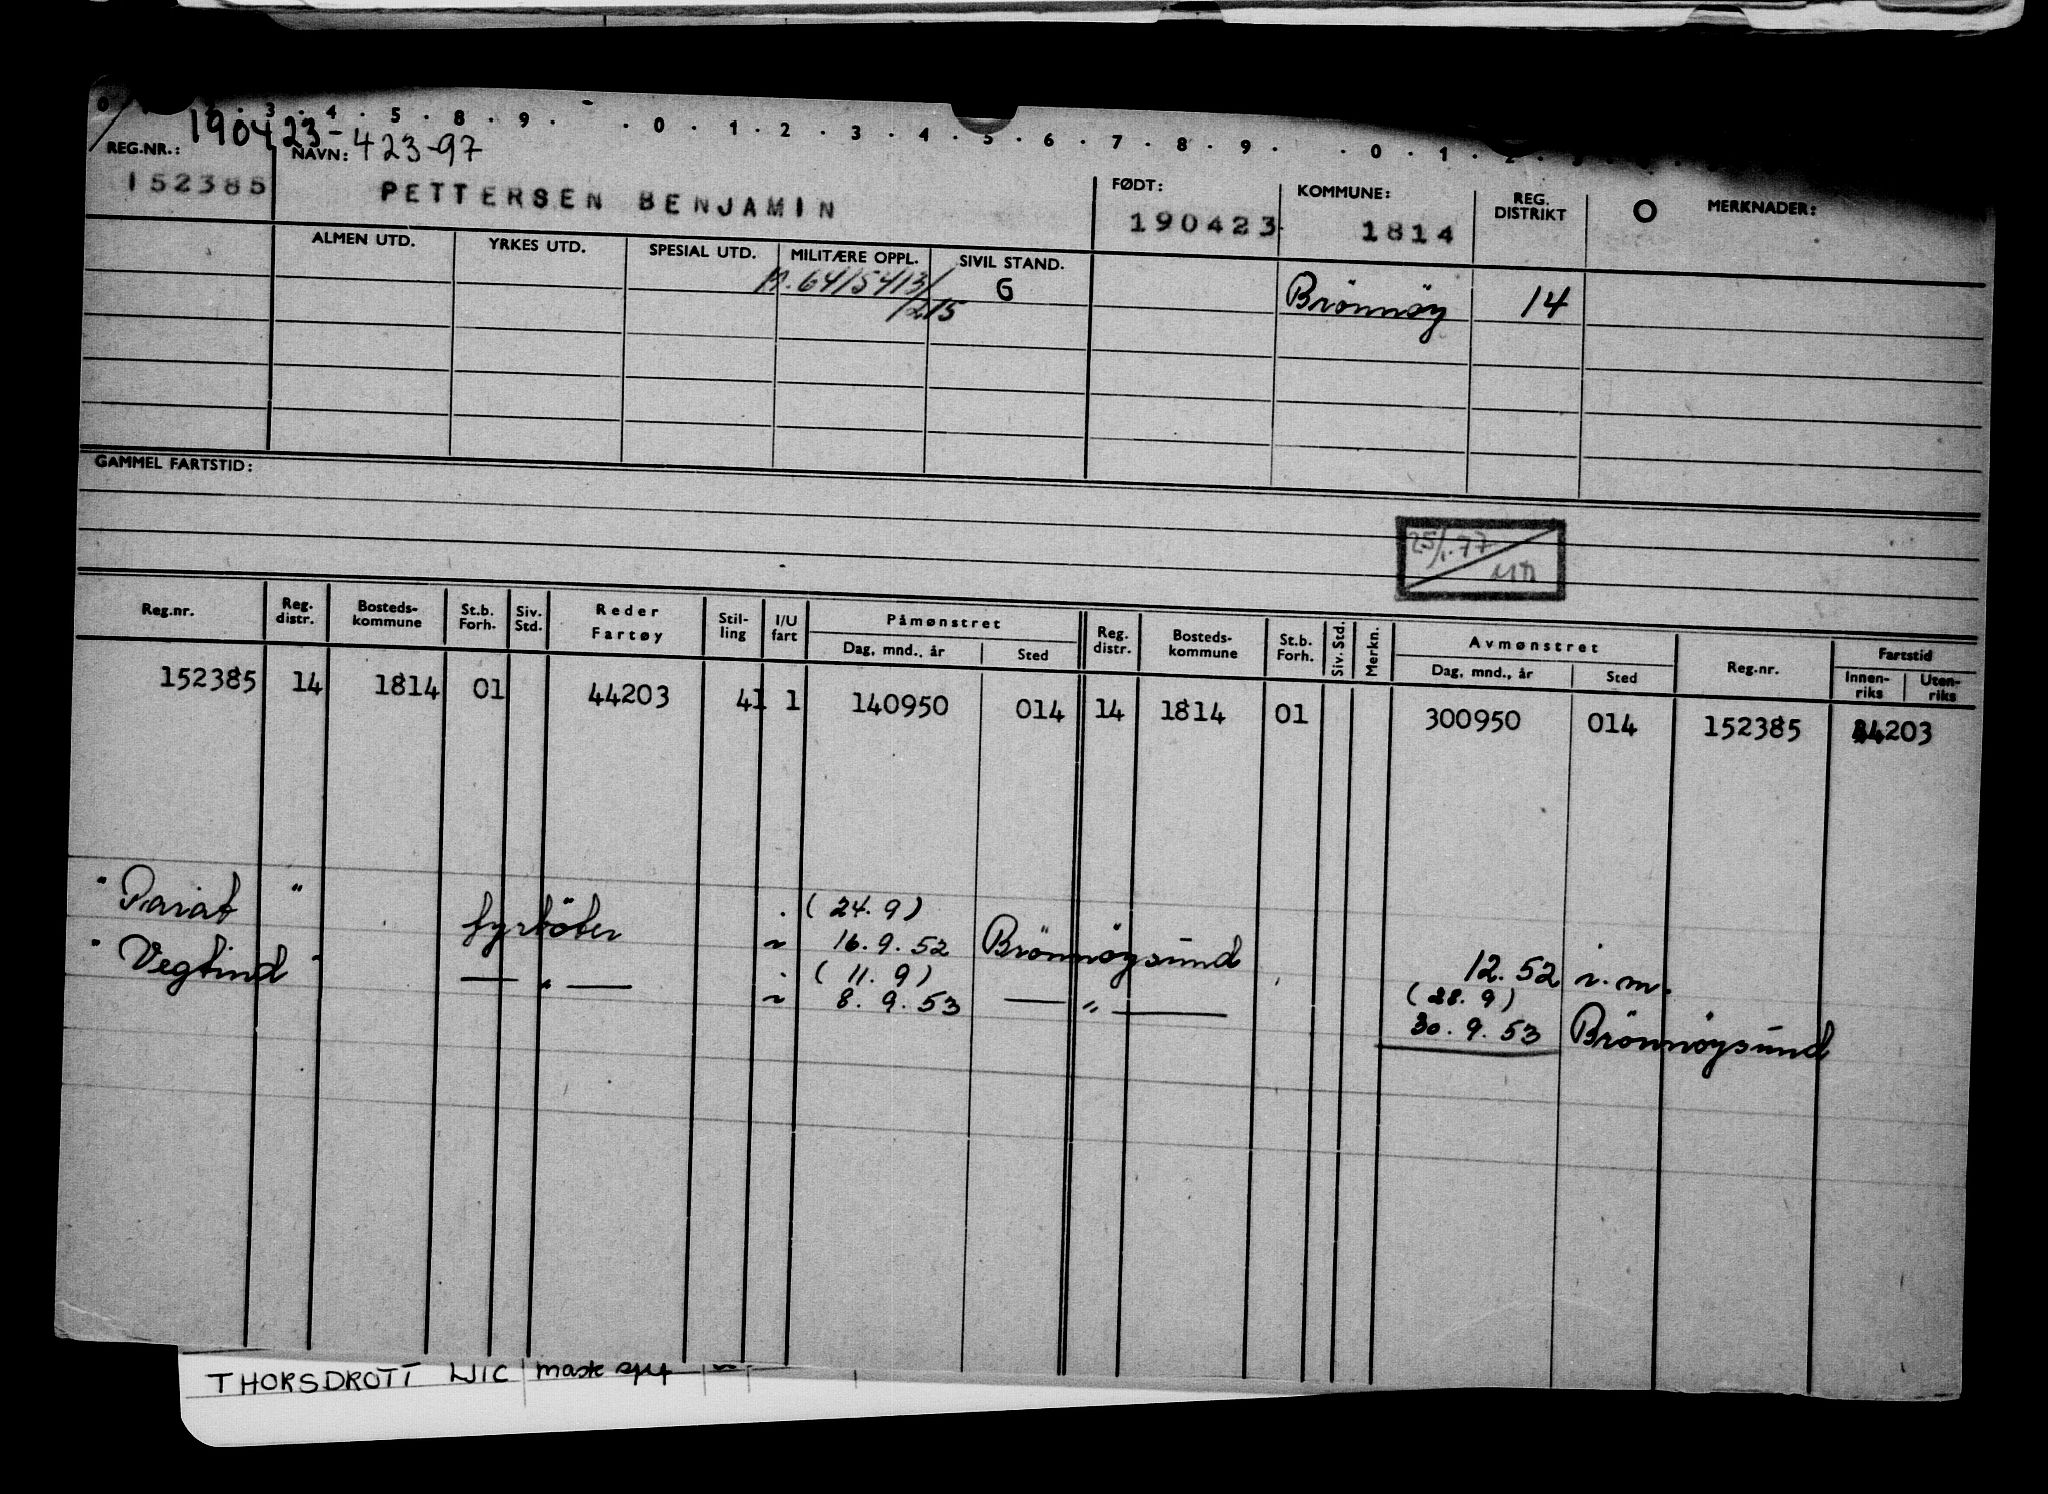 0 3 . 4 . 5 . 8 . 9 . . 0 . 1 . 2 . 3 . 4 . 5 . 6 . 7 . 8 . 9 . . 0 . 1 . 2
190423-423-97
REG.NR.: NAVN: FØDT: KOMMUNE: REG. DISTRIKT O MERKNADER:
152385 PETTERSEN BENJAMIN 190423 1814
ALMEN UTD. YRKES UTD. SPESIAL UTD. MILITÆRE OPPL. SIVIL STAND.
G Brönnöy 14
GAMMEL FARTSTID:
25/1.77
Reg.nr. Reg. distr. Bosteds- kommune St.b. Forh. Siv. Std. Reder Fartøy Stil- ling I/U fart Påmønstret Dag, mnd., år Sted Reg. distr. Bosteds- kommune St.b. Forh. Siv. Std. Merkn. Avmønstret Dag, mnd., år Sted Reg.nr. Fartstid Innen- riks Uten- riks
152385 14 1814 01 44203 41 1 140950 014 14 1814 01 300950 014 152385 44203
(24.9)
" Pariat " fyrböter 16.9.52 Brönnöysund 12.52 i.m.
(11.9) (28.9)
" Vegtind " — " — 8.9.53 — " — 30.9.53 Brönnöysund
THORSDROTT LJIC mask